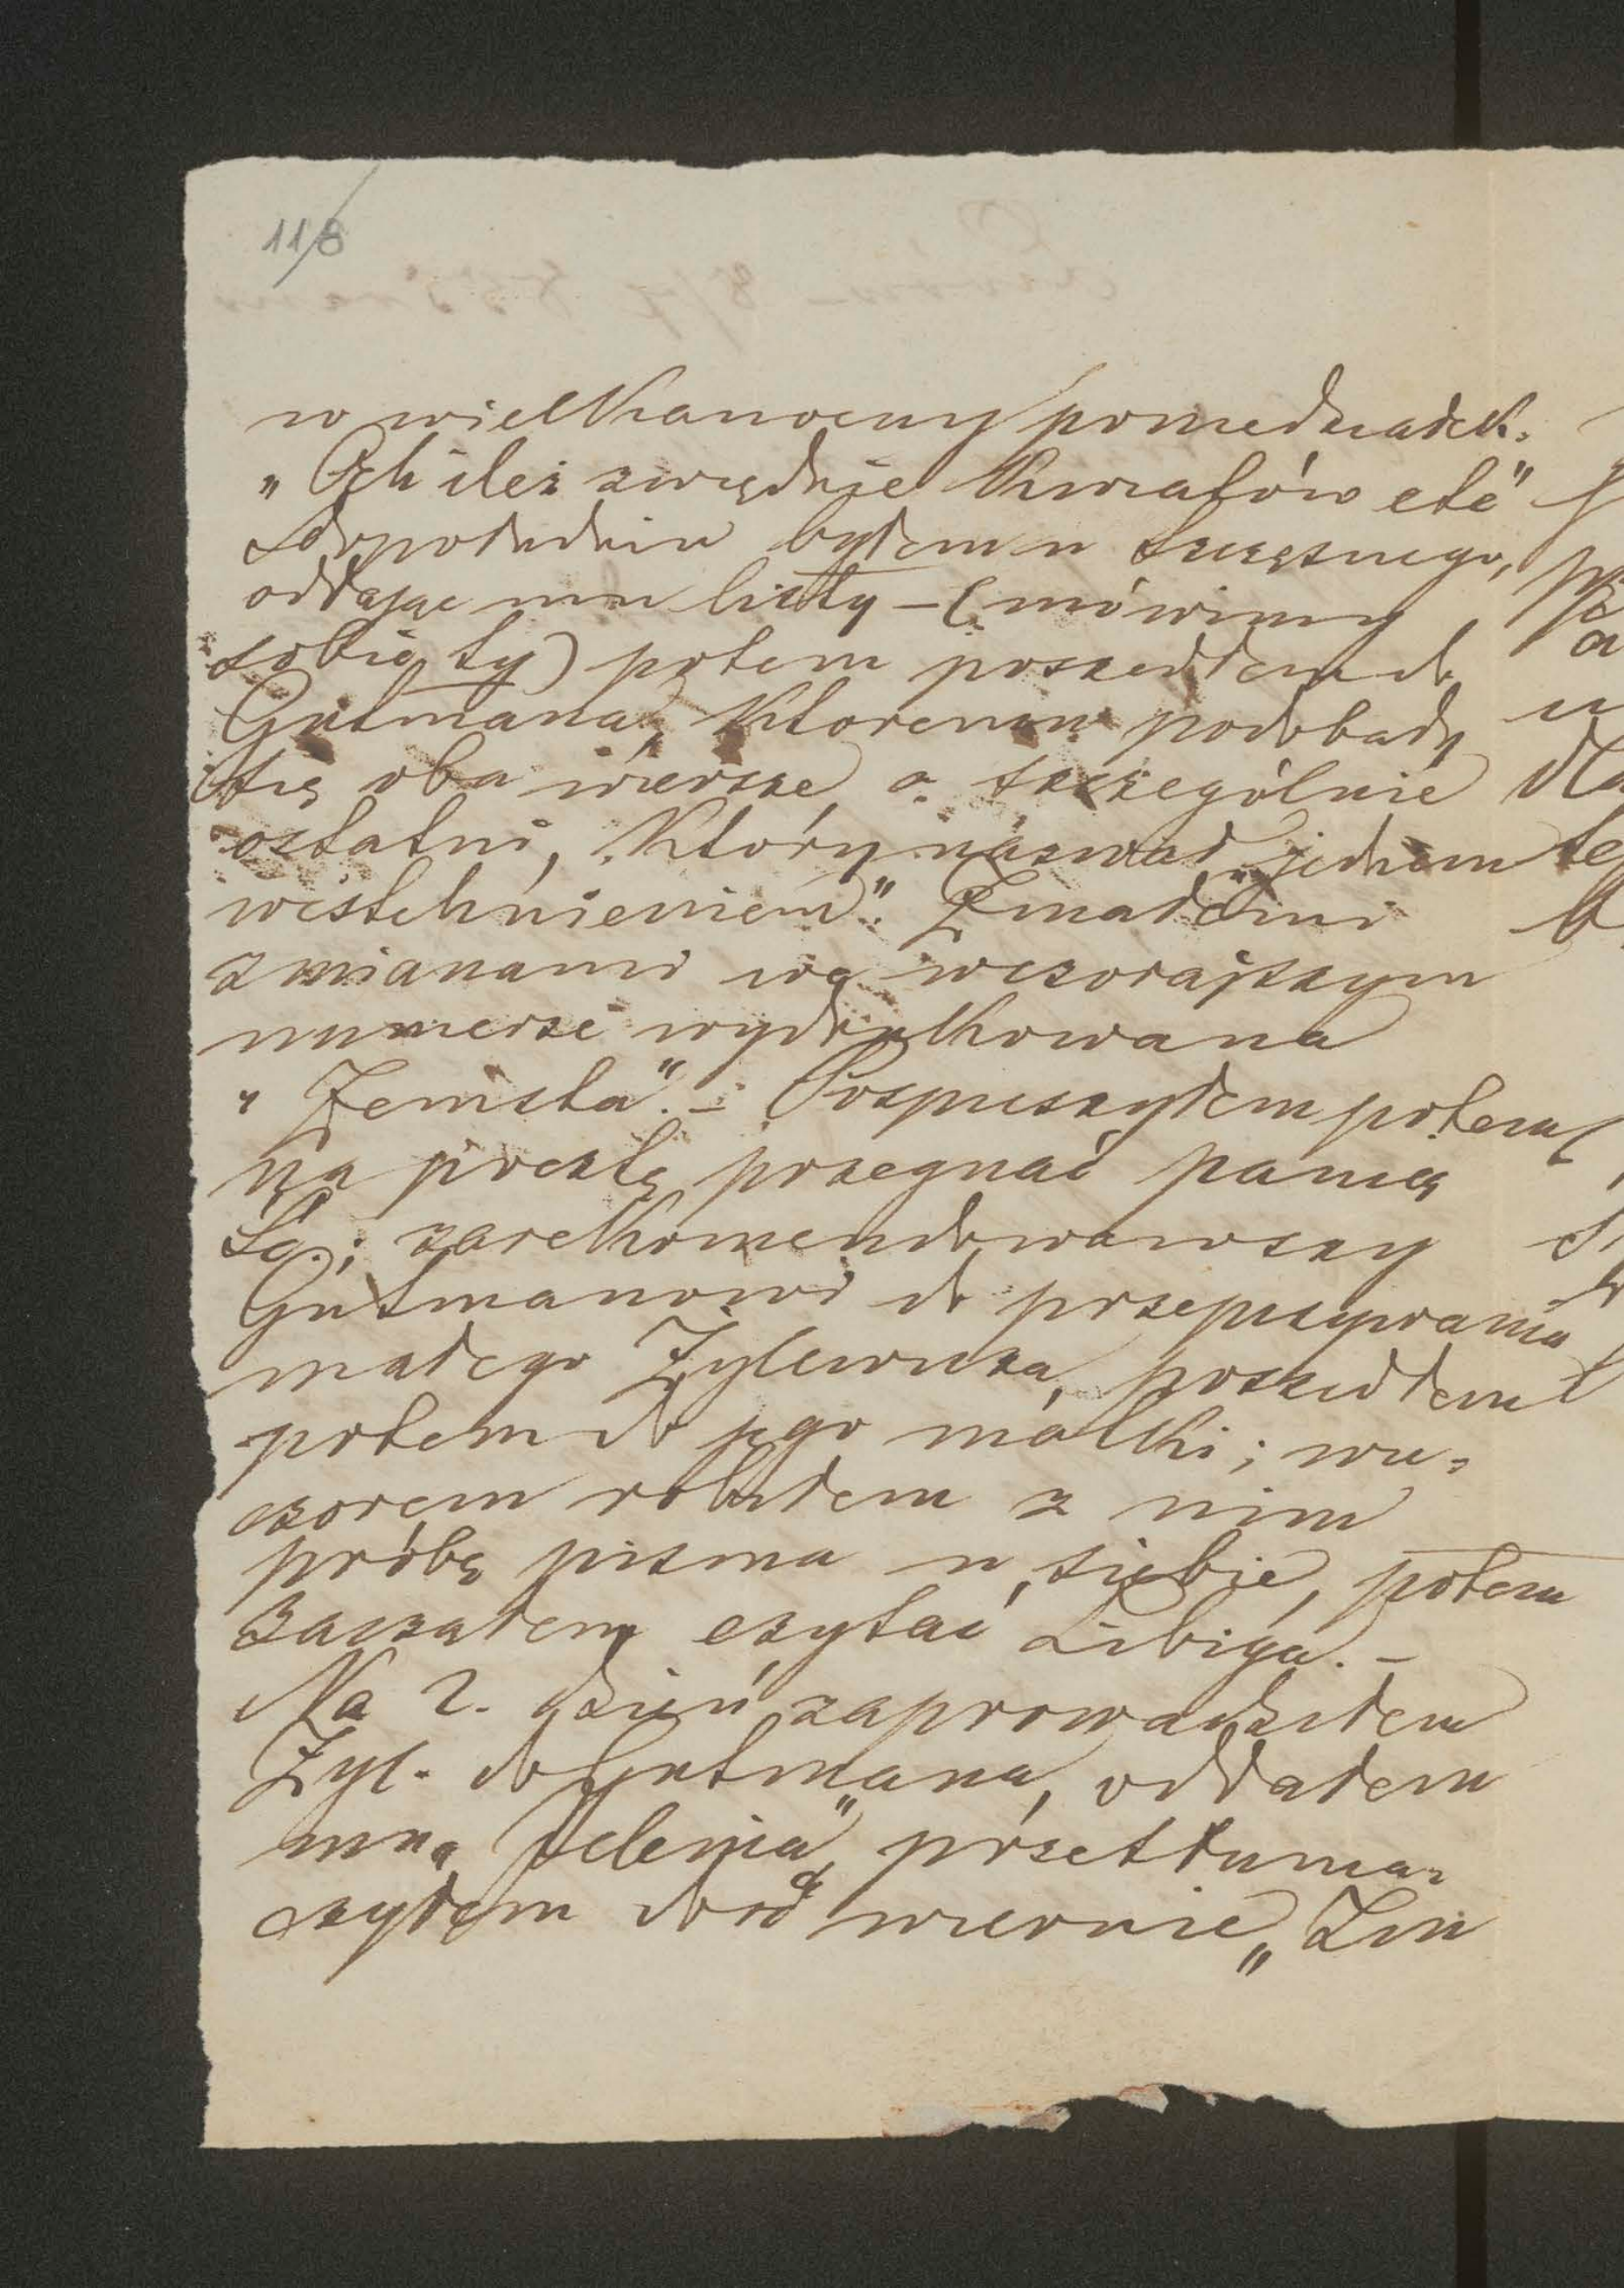 118
w wielkanocny poniedziałek.
„Ach ileż zwiędnie kwiatów etc"
Popołudniu byłem u Szczęsnego,
oddając mu listy — (mówimy
sobie ty) potem poszedłem do
Gutmana, któremu podobały
się oba wiersze, a szczególnie
ostatni, który nazwał „jednem
westchnieniem". Z małemi
zmianami we wczorajszym
numerze wydrukowana
„Zemsta". – Pospieszyłem potem
na pocztę pożegnać panią
Sa.; zarekomendowawszy
Gutmanowi do przepisywania
małego Zylewicza, poszedłem
potem do jego matki; wie-
czorem robiłem z nim
próbę pisma u siebie, potem
zacząłem czytać Libiga. –
Na 2. dzień zaprowadziłem
Zyl. do Gutmana, oddałem
mu „Velenia" przetłuma-
czyłem dość wiernie „Zim